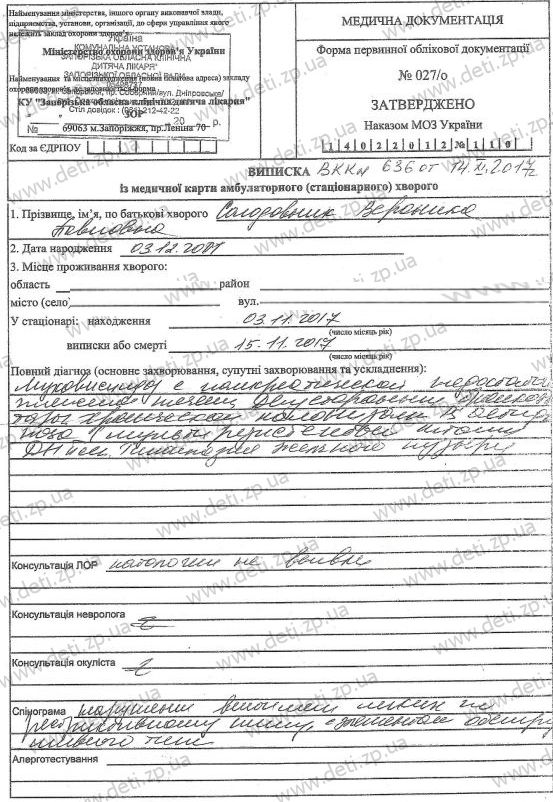 Найменування міністерства, іншого органу виконавчої влади,
підприємства, установи, організації, до сфери управління якого
належить заклад охорони здоров'я
Україна
Міністерство охорони здоров'я України
КОМУНАЛЬНА УСТАНОВА
ЗАПОРІЗЬКА ОБЛАСНА КЛІНІЧНА
ДИТЯЧА ЛІКАРНЯ"
ЗАПОРІЗЬКОЇ ОБЛАСНОЇ РАДИ
Найменування та місцезнаходження (повна поштова адреса) закладу
КУ "Запорізька обласна клінічна дитяча лікарня"
ЗОР
Стіл довідок : (061) 212-42-22
№ 20 р.
69063 м.Запоріжжя, пр.Леніна 70
Код за ЄДРПОУ
МЕДИЧНА ДОКУМЕНТАЦІЯ
Форма первинної облікової документації
№ 027/о
ЗАТВЕРДЖЕНО
Наказом МОЗ України
1 4 0 2 2 0 1 2 № 1 1 0
ВИПИСКА ВКК № 636 от 14.XI.2017
із медичної карти амбулаторного (стаціонарного) хворого
1. Прізвище, ім'я, по батькові хворого Солодовник Вероника
Павловна
2. Дата народження 03.12.2001
3. Місце проживання хворого:
область район
місто (село) вул.
У стаціонарі: находження 03.11.2017
(число місяць рік)
виписки або смерті 15.11.2017
(число місяць рік)
Повний діагноз (основне захворювання, супутні захворювання та ускладнення):
Муковисцидоз с панкреатической
хронической
желчного пузыря
Консультація ЛОР патологии не
Консультація невролога
Консультація окуліста
Спінограма нарушения легких по
рестриктивному типу, с элементами
типа
Алерготестування
www.deti.zp.ua